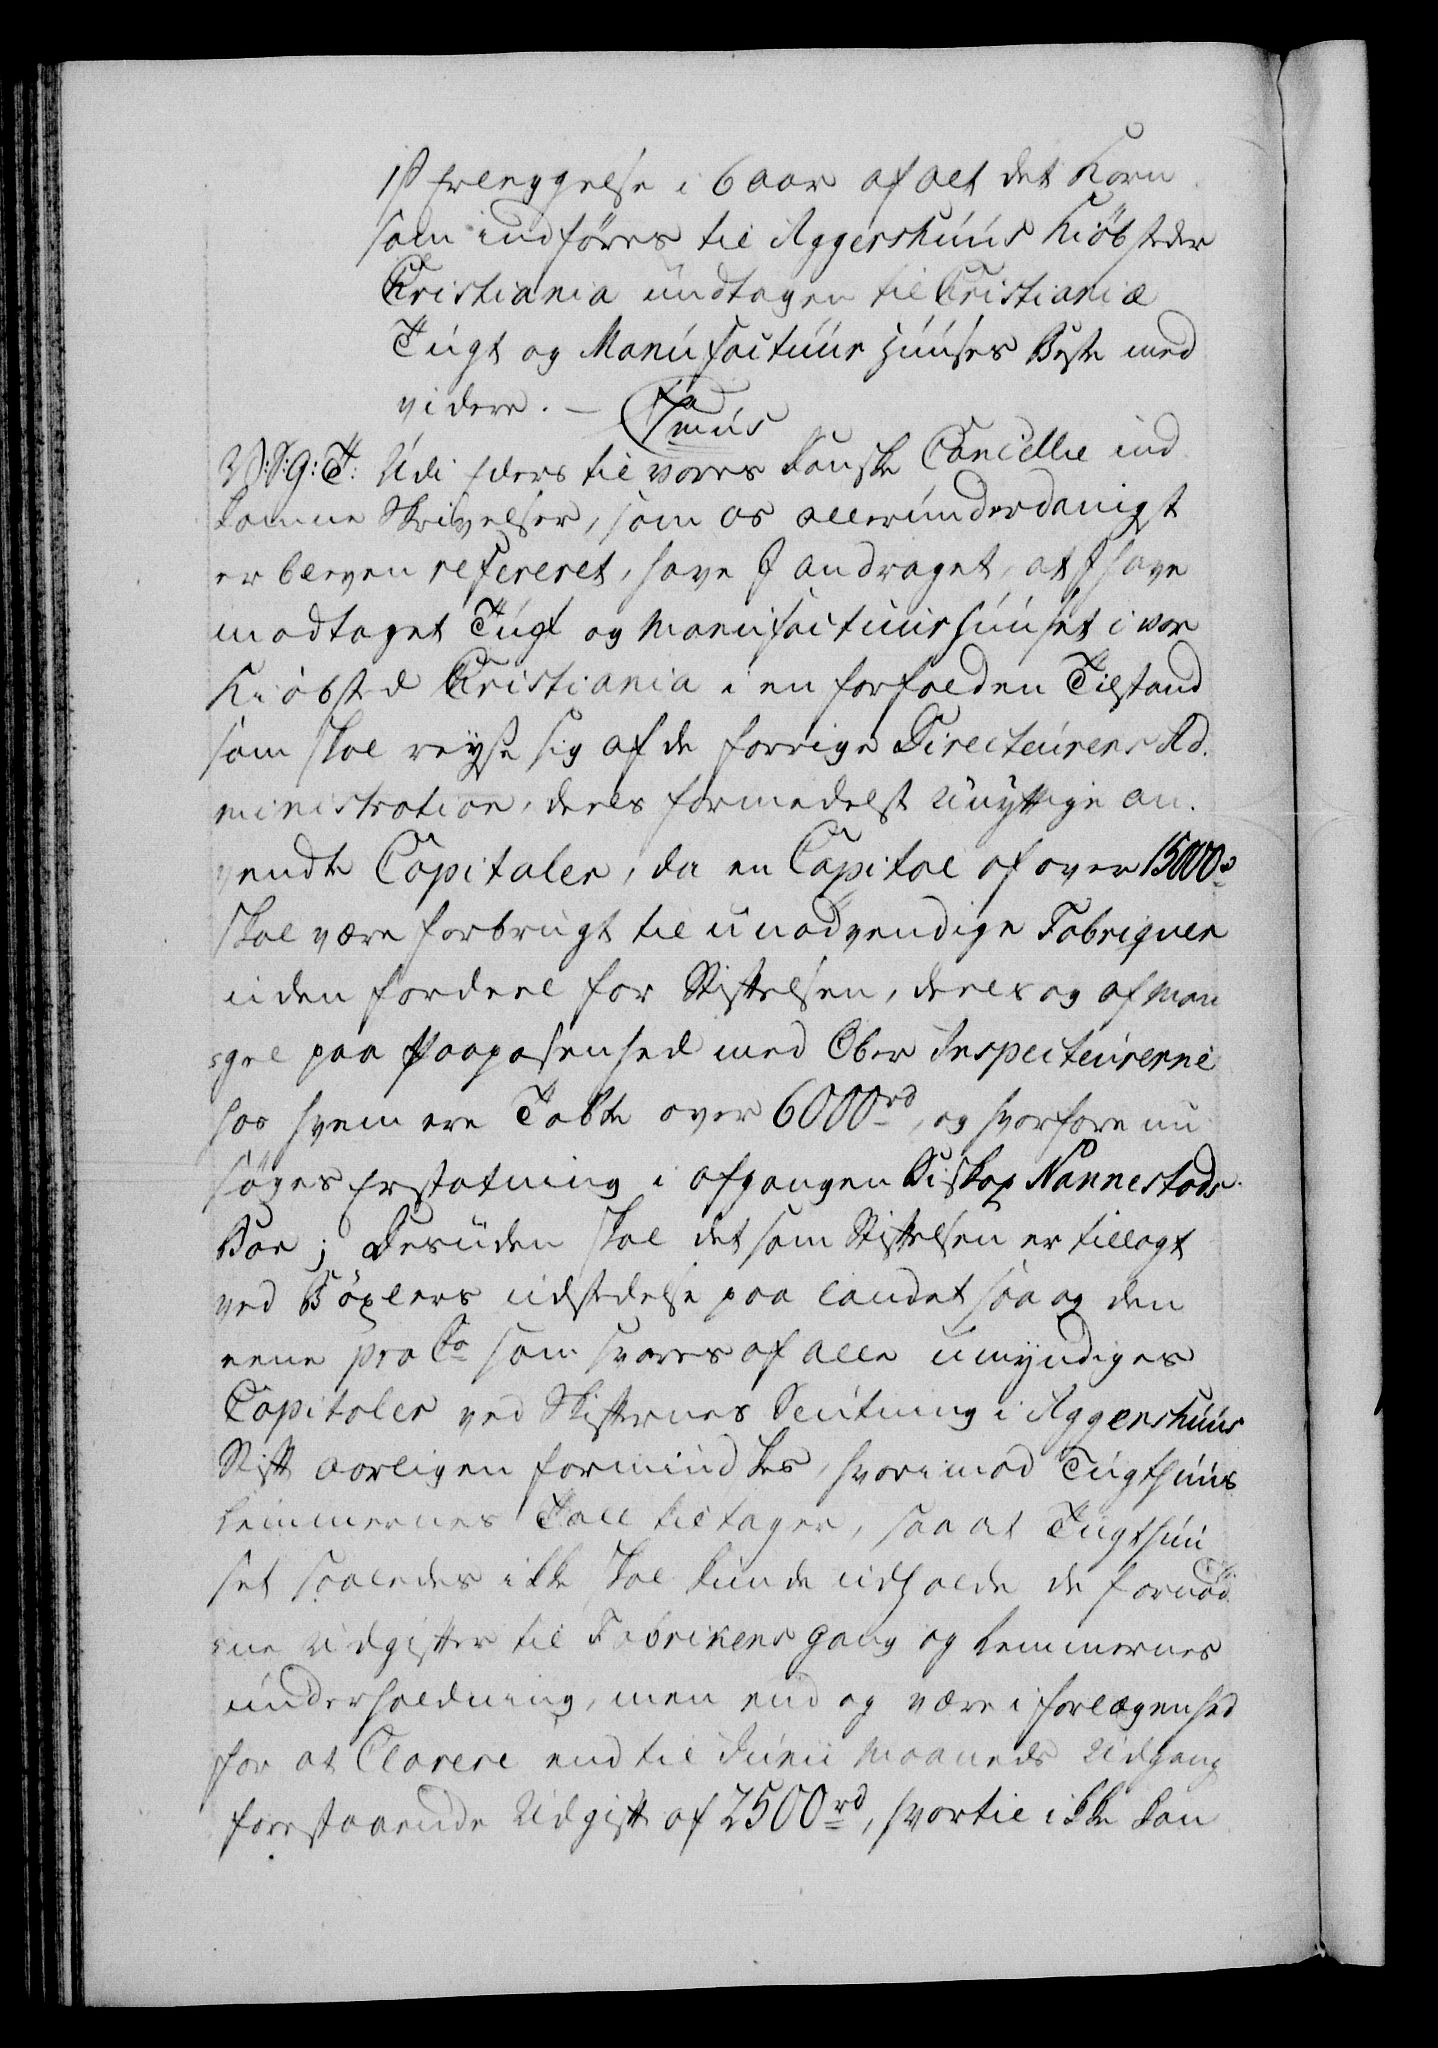 1 ß Erlæggelse i 6 aar af alt det Korn
som indföres til Aggershuus Kiöbsteder
Christiania undtagen til Christianiæ
Tugt og Manufactuur Huuses Beste med
videre. —
V: S: G: T: Udi Eders til vores danske Cancellie ind
komne Skrivelser, som os allerunderdanigst
er bleven refereret, have I andraget, at I have
modtaget Tugt og Manufactuurhuuset i vor
Kiöbsted Christiania i en forfalden Tilstand
som skal reyse sig af de forrige Directeurers Ad.
ministration, deels formedelst unyttige an.
vendte Capitaler, da en Capital af over 15000 rd
skal være forbrugt til unödvendige Fabriquer
uden fordeel for Stiftelsen, deels og af Man
gel paa Paapasenhed med Ober Inspecteurerne
hos hvem ere Tabte over 6000 rd, og hvorfore nu
söges Erstatning i afgangen Biskop Nannestads
Boe; Desuden skal det som Stiftelsen er tillagt
ved Böxlers udstedelse paa landet saa og den
eene pro Co som svares af alle umyndiges
Capitaler ved Skifternes Slutning i Aggershuus
Stift aarligen formindskes, hvorimod Tugthuus
Lemmernes Tall tiltager, saa at Tugthuu
set saaledes ikke skal kunde udholde de fornöd
ne Udgifter til Fabrikens gang og Lemmernes
underholdning, men end og være i forlægenhed
for at Clarere end til Junii Maaneds Udgang
forestaaende Udgift af 2500 rd, hvortil ikke kan